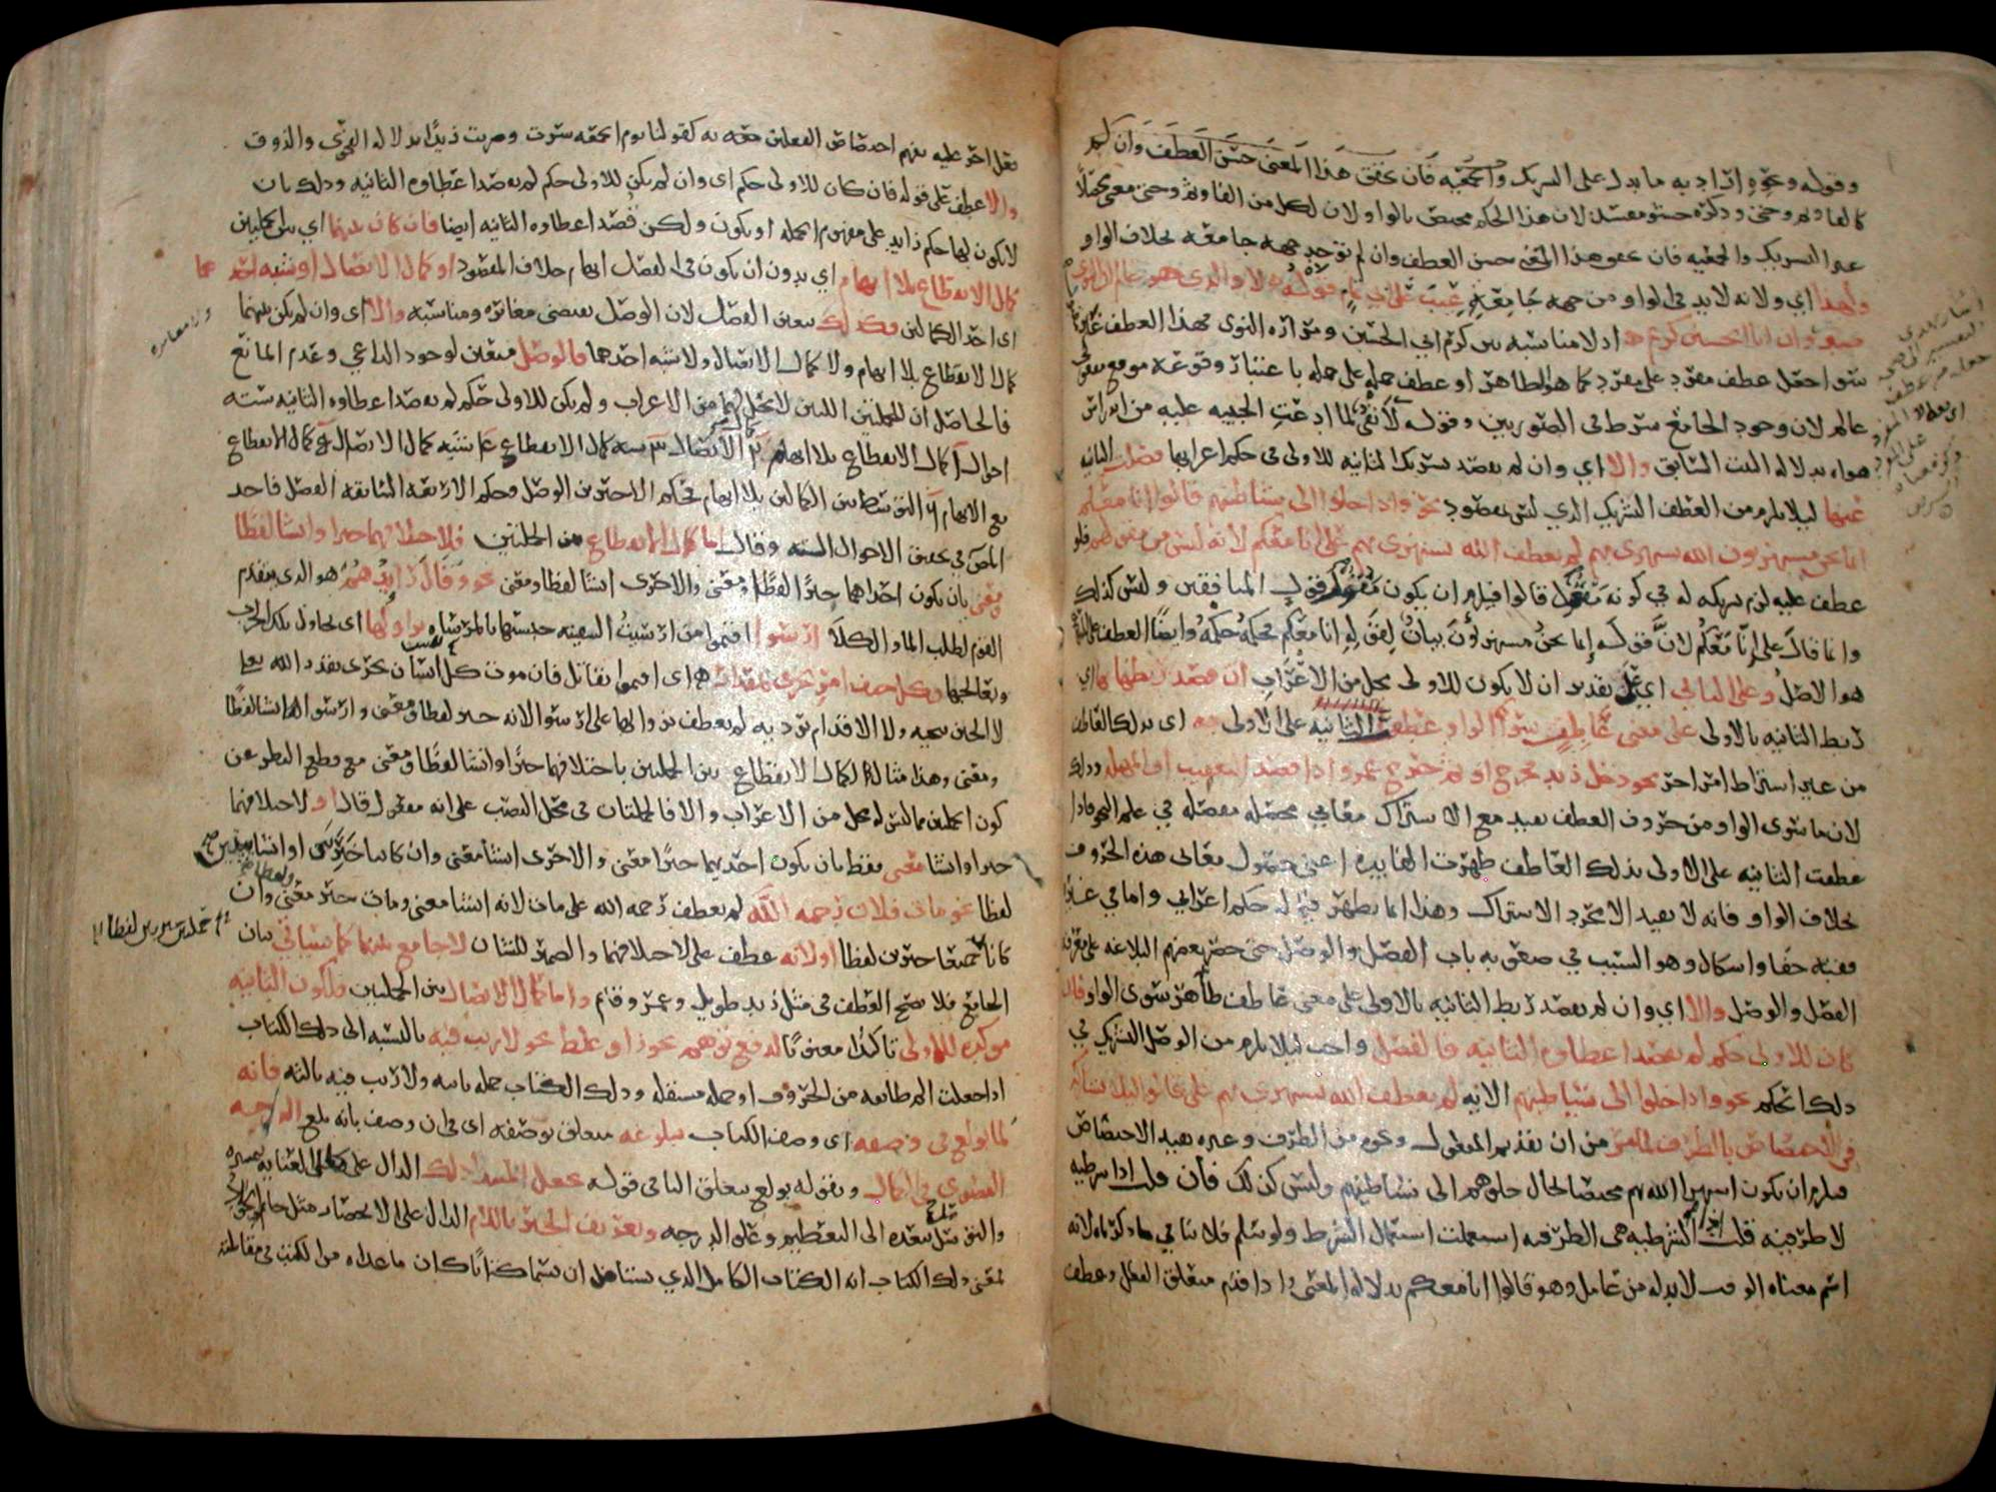 وقوله ونحوه اراد به ما يدل على التشريك والجمعية فان تحقق هذا المعنى حسن العطف وان لم
كالفاء وثم وحتى وذكره حشو مفسد لان هذا الحكم مختص بالواو لان لكل من الفاء وثم وحتى معنى محصلا
غير التشريك والجمعية فان تحقق هذا المعنى حسن العطف وان لم توجد جهة جامعة بخلاف الواو
ولهذا اي ولانه لابد في الواو من جهة جامعة عيب على ابي تمام قوله لا والذي هو عالم ان النوى
صبر وان ابا الحسين كريم اذ لا مناسبة بين كرم ابي الحسين ومرارة النوى فهذا العطف غير
سوا جعل عطف مفرد على مفرد كما هو الظاهر او عطف جملة على جملة باعتبار وقوعه موقع مفعولي
عالم لان وجود الجامع شرط في الصورتين وقوله لا نفي لما ادعت الحبيبة عليه من اندراس
هواه بدلالة البيت السابق والا اي وان لم يقصد تشريك الثانية للاولى في حكم اعرابها فصلت الثانية
عنها ليلا يلزم من العطف التشريك الذي ليس بمقصود نحو واذا خلوا الى شياطينهم قالوا انا معكم
انما نحن مستهزؤن الله يستهزئ بهم لم يعطف الله يستهزئ بهم على انا معكم لانه ليس من مقولهم فلو
عطف عليه لزم تشريكه له في كونه مفعول قالوا فيلزم ان يكون مقول قول المنافقين وليس كذلك
وانما قال على انا معكم لان قوله انما نحن مستهزؤن بيان لقوله انا معكم فحكمه حكمه وايضا العطف على
هو الاصل وعلى الثاني اي على تقدير ان لا يكون للاولى محل من الاعراب ان قصد ربطها بها اي
ربط الثانية بالاولى على معنى عاطف سوى الواو عطفت الثانية على الاولى به اي بذلك العاطف
من غير اشتراط امر اخر نحو دخل زيد فخرج عمرو او ثم خرج عمرو اذا قصد التعقيب او المهلة وذلك
لان ما سوى الواو من حروف العطف يفيد مع الاشتراك معاني محصلة مفصلة في علم النحو فاذا
عطفت الثانية على الاولى بذلك العاطف ظهرت الفائدة اعني حصول معاني هذه الحروف
بخلاف الواو فانه لا يفيد الا مجرد الاشتراك وهذا انما يظهر فيما له حكم اعرابي واما في غيره
ففيه خفا واشكال وهو السبب في صعوبة باب الفصل والوصل حتى حصر بعضهم البلاغة على معرفة
الفصل والوصل والا اي وان لم يقصد ربط الثانية بالاولى على معنى عاطف ظاهر سوى الواو فان
كان للاولى حكم لم يقصد اعطاوه الثانية فالفصل واجب ليلا يلزم من الوصل التشريك في
ذلك الحكم نحو واذا خلوا الى شياطينهم الاية لم يعطف الله يستهزئ بهم على قالوا ليلا يشاركه
في الاختصاص بالظرف لما مر من ان تقديم المفعول ونحوه من الظرف وغيره يفيد الاختصاص
فيلزم ان يكون استهزا الله بهم مختصا بحال خلوهم الى شياطينهم وليس كذلك فان قلت اذا شرطية
لا ظرفية قلت اذا الشرطية هي الظرفية استعملت استعمال الشرط ولو سلم فلا ينافي ما ذكرناه لانه
اسم معناه الوقت لابد له من عامل وهو قالوا انا معكم بدلالة المعنى واذا قدم متعلق الفعل وعطف
فعل اخر عليه يفهم اختصاص الفعلين جميعا به كقولنا يوم الجمعة سرت وضربت زيدا بدلالة الفحوى والذوق
والا عطف على قوله فان كان للاولى حكم اي وان لم يكن للاولى حكم لم يقصد اعطاوه الثانية وذلك بان
لا يكون لها حكم زايد على مفهوم الجملة او يكون ولكن قصد اعطاوه الثانية ايضا فان كان بينهما اي بين الجملتين
كمال الانقطاع بلا ايهام اي بدون ان يكون في الفصل ايهام خلاف المقصود او كمال الاتصال او شبه احدهما
اي احد الكمالين فكذلك يتعين الفصل لان الوصل يقتضي مغايرة ومناسبة والا اي وان لم يكن بينهما
كمال الانقطاع بلا ايهام ولا كمال الاتصال ولا شبه احدهما فالوصل متعين لوجود الداعي وعدم المانع
فالحاصل ان للجملتين اللتين لا محل لهما من الاعراب ولم يكن للاولى حكم لم يقصد اعطاوه الثانية ستة
احوال كمال الانقطاع بلا ايهام كمال الاتصال شبه كمال الانقطاع شبه كمال الاتصال كمال الانقطاع
مع الايهام التوسط بين الكمالين فحكم الاخيرين الوصل وحكم الاربعة السابقة الفصل فاخذ
المص في تحقيق الاحوال الستة وقال اما كمال الانقطاع بين الجملتين فلاختلافهما خبرا وانشا لفظا
ومعنى بان يكون احداهما خبرا لفظا ومعنى والاخرى انشا لفظا ومعنى نحو وقال رايدهم هو الذي يتقدم
القوم لطلب الما والكلا ارسوا اقيموا من ارسيت السفينة حبستها بالمرساة نزاولها اي نحاول تلك الحرب
ونعالجها فكل حتف امرئ يجري بمقدار اي اقيموا نقاتل فان موت كل نفس يجري بقدر الله تعالى
لا الجبن ينجيه ولا الاقدام يرديه لم يعطف نزاولها على ارسوا لانه خبر لفظا ومعنى وارسوا انشا لفظا
ومعنى وهذا مثال لكمال الانقطاع بين الجملتين باختلافهما خبرا وانشا لفظا ومعنى مع قطع النظر عن
كون الجملتين مما ليس له محل من الاعراب والا فالجملتان في محل النصب على انه مفعول قال او لاختلافهما
خبرا وانشا معنى فقط بان يكون احديهما خبرا معنى والاخرى انشا معنى وان كانتا خبرتين او انشايتين
لفظا نحو مات فلان رحمه الله لم يعطف رحمه الله على مات لانه انشا معنى ومات خبر معنى وان
كانتا جميعا خبرين لفظا او لانه عطف على لاختلافهما والضمير للشان لا جامع بينهما كما سياتي بيان
الجامع فلا يصح العطف في مثل زيد طويل وعمرو قائم واما كمال الاتصال بين الجملتين فلكون الثانية
موكدة للاولى تاكيدا معنويا لدفع توهم تجوز او غلط نحو لا ريب فيه بالنسبة الى ذلك الكتاب
اذا جعلت الم طايفة من الحروف او جملة مستقلة وذلك الكتاب جملة ثانية ولا ريب فيه ثالثة فانه
لما بولغ في وصفه اي وصف الكتاب ببلوغه متعلق بوصفه اي في ان وصف بانه بلغ الدرجة
القصوى في الكمال وبقوله بولغ يتعلق البا في قوله بجعل المبتدا ذلك الدال على كمال العناية بتمييزه
والتوسل ببعده الى التعظيم وعلو الدرجة وتعريف الخبر باللام الدال على الانحصار مثل حاتم الجواد
فمعنى ذلك الكتاب انه الكتاب الكامل الذي يستاهل ان يسما كتابا كان ما عداه من الكتب في مقابلته